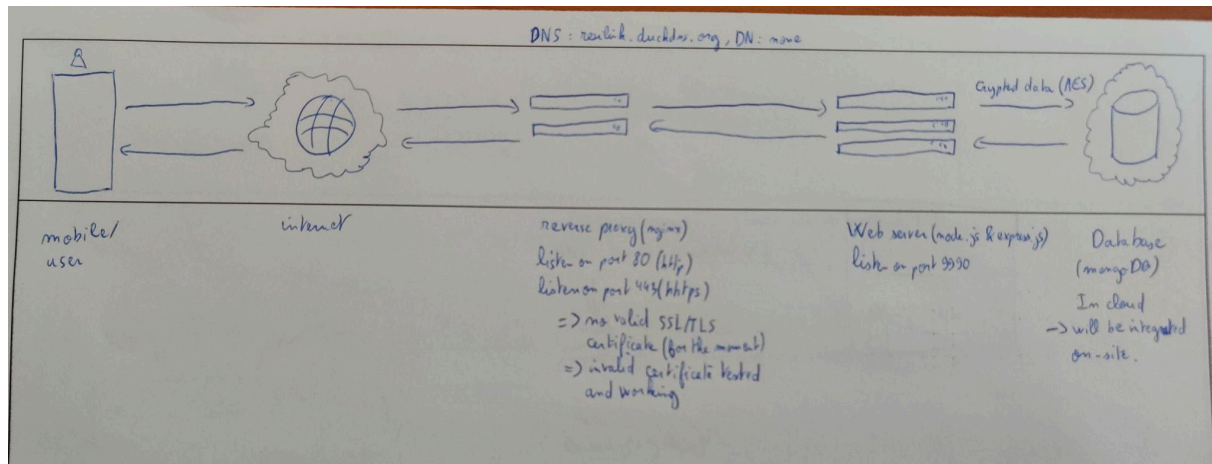 DNS : reulink.duckdns.org, DN: none
Crypted data (AES)
mobile/
user
internet
reverse proxy (nginx)
listen on port 80 (http)
listen on port 443 (hhtps)
=> no valid SSL/TLS
certificate (for the moment)
=> invalid certificate tested
and working
Web server (node.js & express.js)
listen on port 9990
Database
(mongoDB)
In cloud
-> will be integrated
on-site.